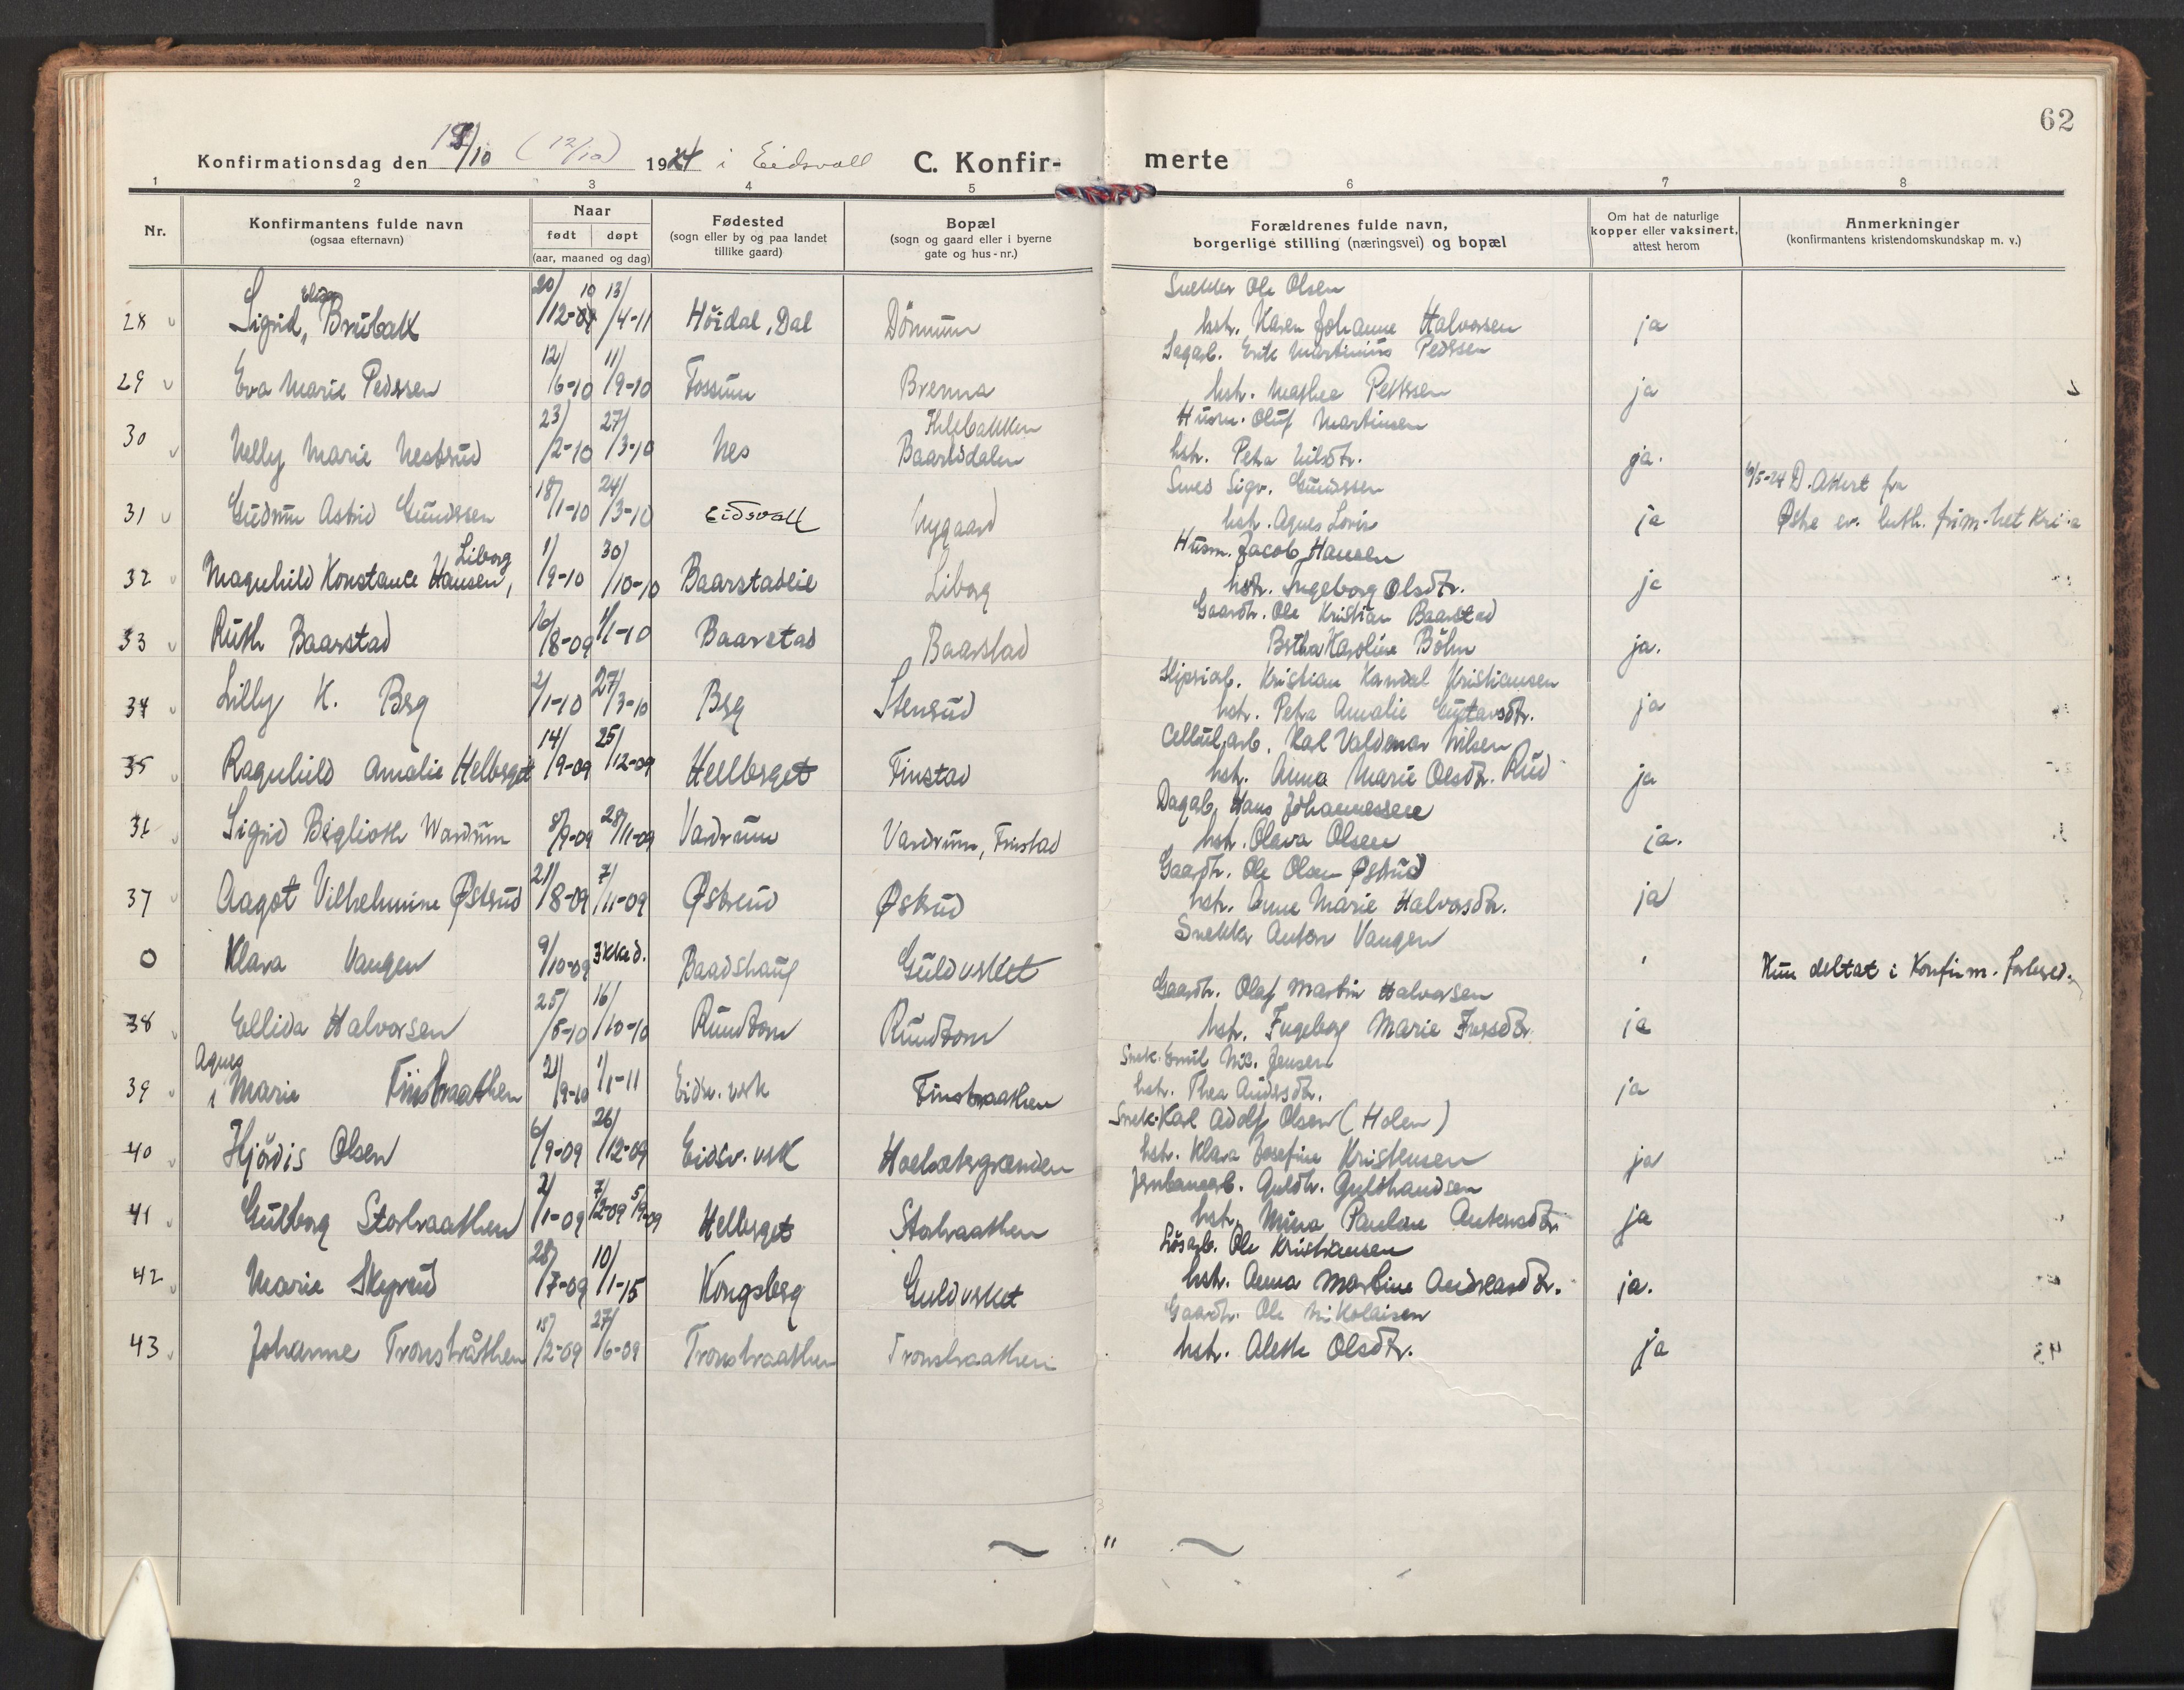 62
Konfirmationsdag den 19/10 (12/10) 1924 i Eidsvoll C. Konfir- merte
1 2 3 4 5 6 7 8
Nr.
Konfirmantens fulde navn
(ogsaa efternavn)
Naar
født døpt
(aar, maaned og dag)
Fødested
(sogn eller by og paa landet
tillike gaard)
Bopæl
(sogn og gaard eller i byerne
gate og hus-nr.)
Forældrenes fulde navn,
borgerlige stilling (næringsvei) og bopæl
Om hat de naturlige
kopper eller vaksinert,
attest herom
Anmerkninger
(konfirmantens kristendomskundskap m. v.)
Snekker Ole Olsen
28 Sigrid, Brubakk 20/12-10 13/4-11 Høidal, Dal Dönnum hstr. Karen Johanne Halvorsen ja
Sagarb. Erik Martinius Pedersen
29 Eva Marie Pedersen 12/6-10 11/9-10 Fossum Brenna hstr. Mathea Pettersen ja
Husm. Oluf Martinsen
30 Nelly Marie Nestrud 23/2-10 27/3-10 Nes Baarlidalen hstr. Petra Nilsdtr. ja.
Smed Sigv. Gundersen
6/5-24 D. Attest fra
31 Gudrun Astrid Gundersen 18/1-10 24/3-10 Eidsvoll Nygaard hstr. Agnes Lovise ja Østre ev. luth. frim-het Kr.ia
Husm. Jacob Hansen
Liborg
32 Magnhild Konstance Hansen, 1/9-10 30/10-10 Baarstadeie Liborg hstr. Ingeborg Olsdtr. ja
Gaardbr. Ole Kristian Baarstad
33 Ruth Baarstad 16/8-09 1/1-10 Baarstad Baarstad Bertha Karoline Böhn ja.
Slipriarb. Kristian Kandal Kristiansen
34 Lilly K. Berg 2/1-10 27/3-10 Berg Stensrud hstr. Petra Amalie Gustavsdtr. ja
Cellul.arb. Karl Valdemar Nilsen
35 Ragnhild Amalie Helberget 14/9-09 25/12-09 Hellberget Finstad hstr. Anna Marie Olsdtr. Rud ja
Dagarb. Hans Johannessen
36 Sigrid Berglioth Wardrum 8/9-09 28/11-09 Vardrum Vardrum, Finstad hstr. Olava Olsen ja.
Gaardbr. Ole Olsen Østrud
37 Aagot Vilhelmine Østrud 21/8-09 7/11-09 Østrud Østrud hstr. Anne Marie Halvorsdtr. ja
Snekker Anton Vangen
0 Klara Vangen 9/10-09 Ikke d. Baadshaug Guldverket Kun deltat i Konfirm. forbered.
Gaardbr. Olaf Martin Halvorsen
38 Ellida Halvorsen 25/5-10 16/10-10 Rundtom Rundtom hstr. Ingeborg Marie Iversdtr. ja
Agnes
Snek. Emil Nic. Jensen
39 Marie Finstraathen 21/9-10 1/1-11 Eidsv. verk Finstraathen hstr. Thea Andersdtr. ja
Snek. Karl Adolf Olsen (Holen)
40 Hjördis Olsen 6/9-09 26/12-09 Eidsv. verk hstr. Klara Josefine Kristensen ja
Jernbanearb. Guldbr. Guldbrandsen
41 Gulborg Storbraathen 2/1-09 7/2-09 5/9-09 Helberget Storbraathen hstr. Mina Pauline Antonsdtr. ja
Lösarb. Ole Kristiansen
42 Marie Skyrud 28/7-09 10/1-15 Kongsberg Guldverket hstr. Anna Martine Andreasdtr. ja.
Gaardbr. Ole Nikolaisen
43 Johanne Tronsbråthen 15/2-09 27/6-09 Tronsbraathen Tronsbraathen hstr. Alette Olsdtr. ja